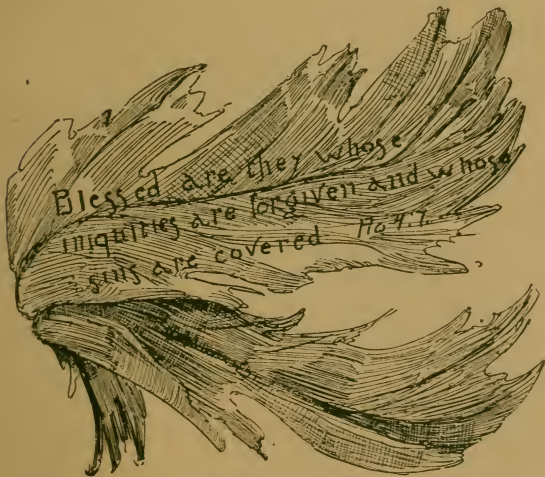 Blessed are they whose
iniquities are forgiven and whose
sins are covered Ro 4.7.